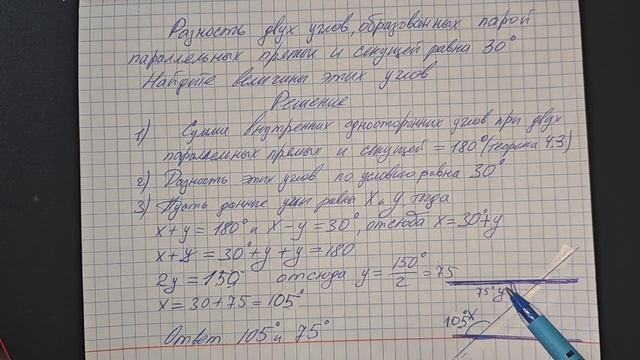 Разность двух углов, образованных парой
параллельных прямых и секущей равна 30°
Найдите величины этих углов
Решение
1) Сумма внутренних односторонних углов при двух
параллельных прямых и секущей = 180° (теорема 4.3)
2) Разность этих углов по условию равна 30°
3) Пусть данные углы равны x и y, тогда
x+y = 180° и x-y = 30°, отсюда x = 30°+y
x+y = 30°+y+y = 180
2y = 150° отсюда y = 150°/2 = 75
x = 30+75 = 105°
Ответ 105° и 75°
75° y
105° x